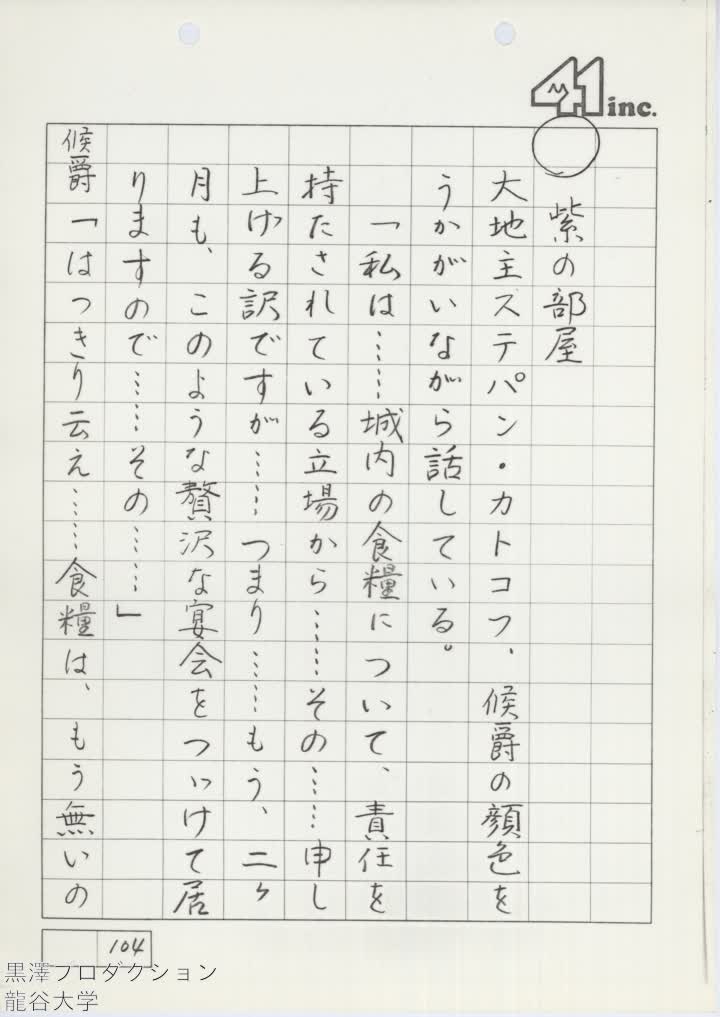 41 inc.
紫の部屋
大地主ステパン・カトコフ、候爵の顔色を
うかがいながら話している。
「私は……城内の食糧について、責任を
持たされている立場から……その……申し
上げる訳ですが……つまり……もう、二ヶ
月も、このような贅沢な宴会をつゞけて居
りますので……その……」
候爵「はっきり云え……食糧は、もう無いの
104
黒澤プロダクション
龍谷大学